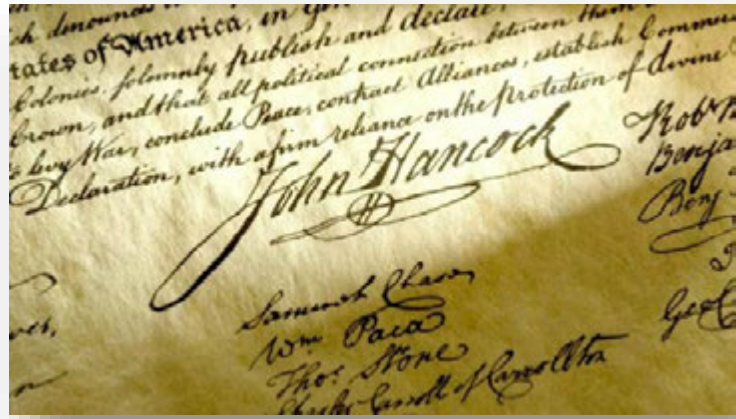 denounces
tates of America, in Gen
Colonies, solemnly publish and declare,
Crown, and that all political connection between them
levy War, conclude Peace, contract Alliances, establish Commerc
Declaration, with a firm reliance on the Protection of divine
John Hancock
Rob
Benja
Benj
Geo C
Samuel Chase
Wm Paca
Thos Stone
Charles Carroll of Carrollton